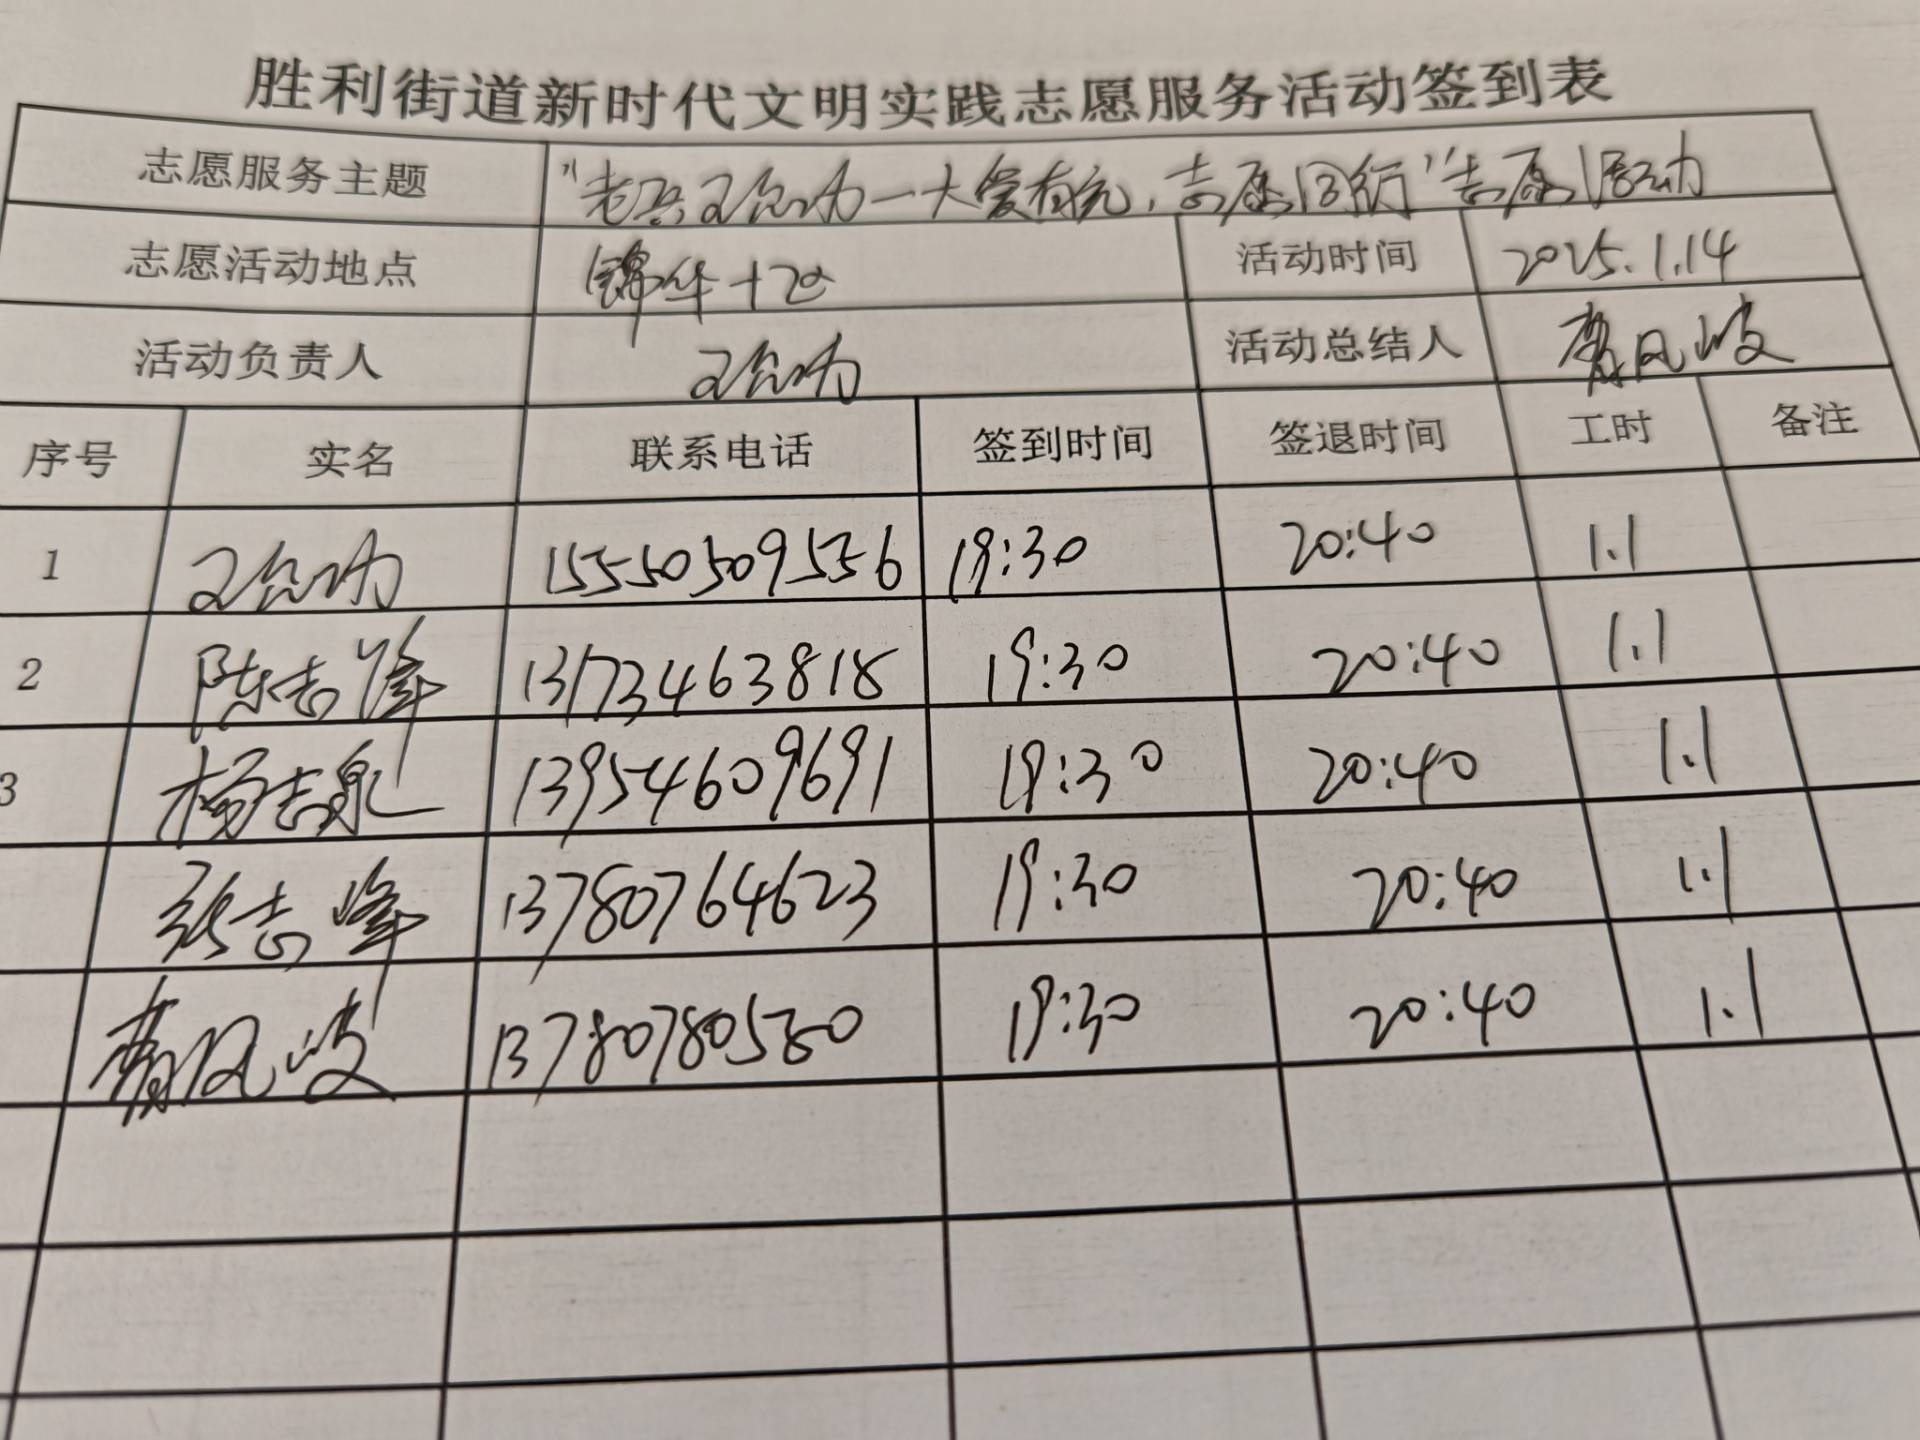 胜利街道新时代文明实践志愿服务活动签到表
志愿服务主题 "老兵 一大爱有 ，志愿同行"志愿活动
志愿活动地点 锦华十 活动时间 2025.1.14
活动负责人 活动总结人
序号 实名 联系电话 签到时间 签退时间 工时 备注
1 15550509556 19:30 20:40 1.1
2 陈志峰 13173463818 19:30 20:40 1.1
3 杨志泉 13954609691 19:30 20:40 1.1
张志峰 13780764623 19:30 20:40 1.1
13780780580 19:30 20:40 1.1